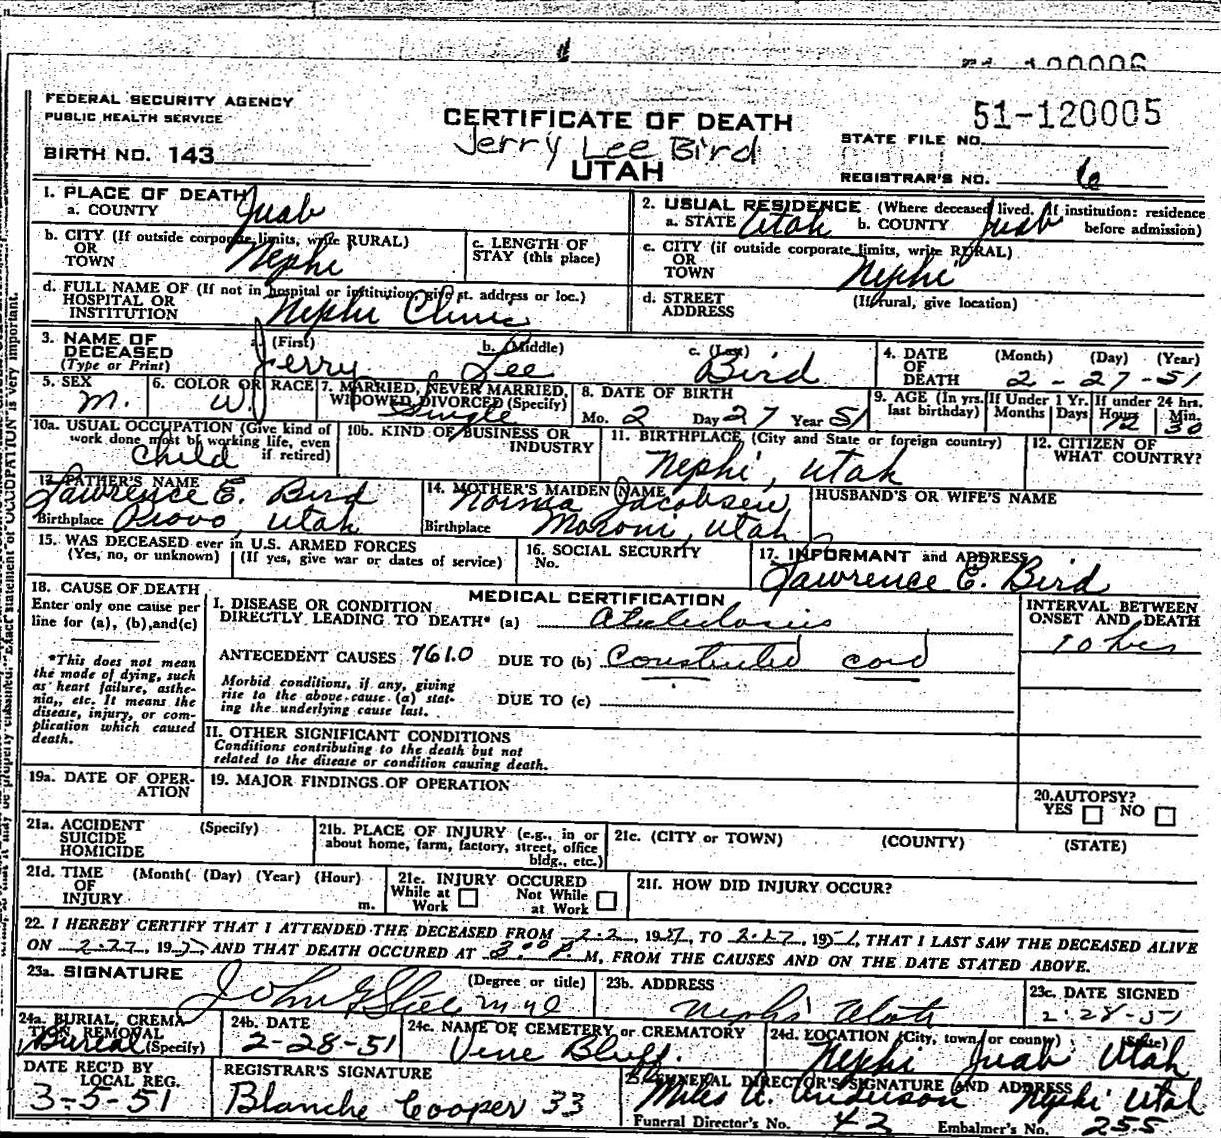 51-120005
FEDERAL SECURITY AGENCY
PUBLIC HEALTH SERVICE
CERTIFICATE OF DEATH
STATE FILE NO.
Jerry Lee Bird
BIRTH NO. 143
UTAH
REGISTRAR'S NO. 6
1. PLACE OF DEATH
a. COUNTY Juab
2. USUAL RESIDENCE (Where deceased lived. If institution: residence before admission)
a. STATE Utah b. COUNTY Juab
b. CITY (If outside corporate limits, write RURAL) OR TOWN Nephi
c. LENGTH OF STAY (this place)
c. CITY (if outside corporate limits, write RURAL) OR TOWN Nephi
d. FULL NAME OF (If not in hospital or institution, give st. address or loc.) HOSPITAL OR INSTITUTION Nephi Clinic
d. STREET ADDRESS (If rural, give location)
3. NAME OF DECEASED (Type or Print)
a. (First) Jerry b. (Middle) Lee c. (Last) Bird
4. DATE OF DEATH (Month) (Day) (Year) 2-27-51
5. SEX M.
6. COLOR OR RACE W
7. MARRIED, NEVER MARRIED, WIDOWED, DIVORCED (Specify) Single
8. DATE OF BIRTH
Mo. 2 Day 27 Year 51
9. AGE (In yrs. last birthday) If Under 1 Yr. Months Days If under 24 hrs. Hours 12 Min. 30
10a. USUAL OCCUPATION (Give kind of work done most of working life, even if retired) Child
10b. KIND OF BUSINESS OR INDUSTRY
11. BIRTHPLACE (City and State or foreign country) Nephi, Utah
12. CITIZEN OF WHAT COUNTRY?
13. FATHER'S NAME Lawrence E. Bird
Birthplace Provo, Utah
14. MOTHER'S MAIDEN NAME Norma Jacobsen
Birthplace Moroni, Utah
HUSBAND'S OR WIFE'S NAME
15. WAS DECEASED ever in U.S. ARMED FORCES
(Yes, no, or unknown) (If yes, give war or dates of service)
16. SOCIAL SECURITY No.
17. INFORMANT and ADDRESS
Lawrence E. Bird
18. CAUSE OF DEATH
Enter only one cause per line for (a), (b), and (c)
*This does not mean the mode of dying, such as heart failure, asthenia, etc. It means the disease, injury, or complication which caused death.
MEDICAL CERTIFICATION
I. DISEASE OR CONDITION DIRECTLY LEADING TO DEATH* (a) Atelectasis
INTERVAL BETWEEN ONSET AND DEATH
10 hrs
ANTECEDENT CAUSES 761.0 DUE TO (b) Constricted cord
Morbid conditions, if any, giving rise to the above cause (a) stating the underlying cause last.
DUE TO (c)
II. OTHER SIGNIFICANT CONDITIONS
Conditions contributing to the death but not related to the disease or condition causing death.
19a. DATE OF OPERATION
19. MAJOR FINDINGS OF OPERATION
20. AUTOPSY?
YES NO
21a. ACCIDENT SUICIDE HOMICIDE (Specify)
21b. PLACE OF INJURY (e.g., in or about home, farm, factory, street, office bldg., etc.)
21c. (CITY or TOWN) (COUNTY) (STATE)
21d. TIME OF INJURY (Month) (Day) (Year) (Hour) m.
21e. INJURY OCCURED
While at Work Not While at Work
21f. HOW DID INJURY OCCUR?
22. I HEREBY CERTIFY THAT I ATTENDED THE DECEASED FROM 2-2, 1951, TO 2-27, 1951, THAT I LAST SAW THE DECEASED ALIVE
ON 2-27, 19 AND THAT DEATH OCCURED AT 3:00 P. M, FROM THE CAUSES AND ON THE DATE STATED ABOVE.
23a. SIGNATURE (Degree or title)
John
23b. ADDRESS
Nephi Utah
23c. DATE SIGNED
2-28-51
24a. BURIAL, CREMATION, REMOVAL (Specify) Burial
24b. DATE
2-28-51
24c. NAME OF CEMETERY or CREMATORY
Vine Bluff.
24d. LOCATION (City, town, or county) (State)
Nephi Juab Utah
DATE REC'D BY LOCAL REG.
3-5-51
REGISTRAR'S SIGNATURE
Blanche Cooper 33
25. FUNERAL DIRECTOR'S SIGNATURE AND ADDRESS
Miles A. Anderson Nephi Utah
Funeral Director's No. 42 Embalmer's No. 255